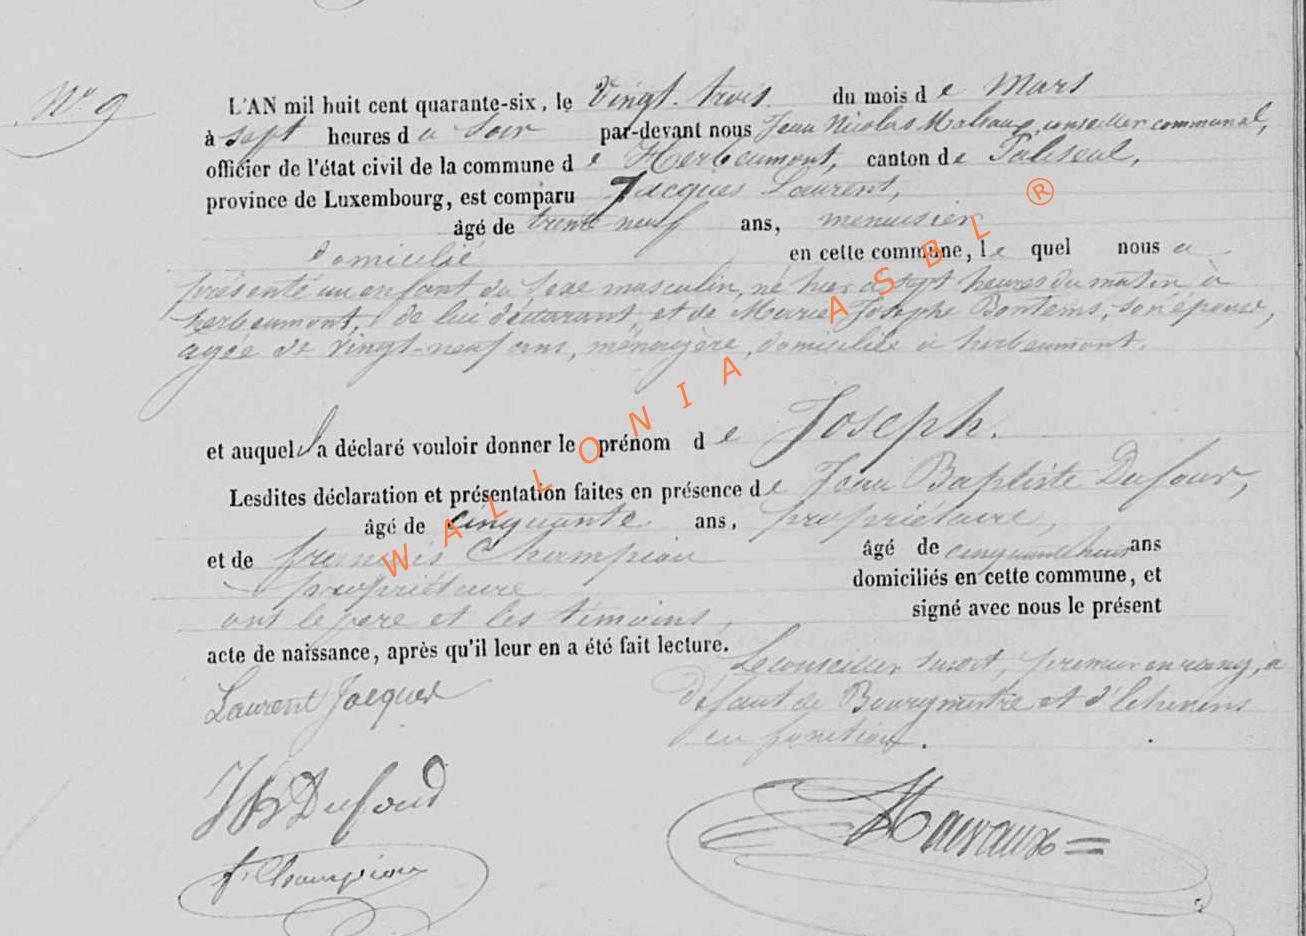 N° 9
L'AN mil huit cent quarante-six, le Vingt-trois du mois de Mars
à sept heures du Soir par-devant nous Jean Nicolas conseiller communal,
officier de l'état civil de la commune de Herbeumont, canton de Paliseul,
province de Luxembourg, est comparu Jacques Laurent,
âgé de trente neuf ans, menuisier
domicilié en cette commune, lequel nous a
présenté un enfant du sexe masculin, né hier à sept heures du matin à
herbeumont, de lui déclarant et de Marie Josephe Bontems, son épouse,
agée de vingt-neuf ans, ménagère, domiciliée à herbeumont.
et auquel il a déclaré vouloir donner le prénom de Joseph.
Lesdites déclaration et présentation faites en présence de Jean Baptiste Dufour,
âgé de cinquante ans, propriétaire,
et de françois Champion âgé de cinquante huit ans
propriétaire domiciliés en cette commune, et
ont le père et les témoins, signé avec nous le présent
acte de naissance, après qu'il leur en a été fait lecture.
Le conseiller susdit, premier en rang, à
défaut de Bourgmestre et d'Echevins
en fonction.
Laurent Jacques
JB Dufour
f. Champion
WALLONIA ASBL ®